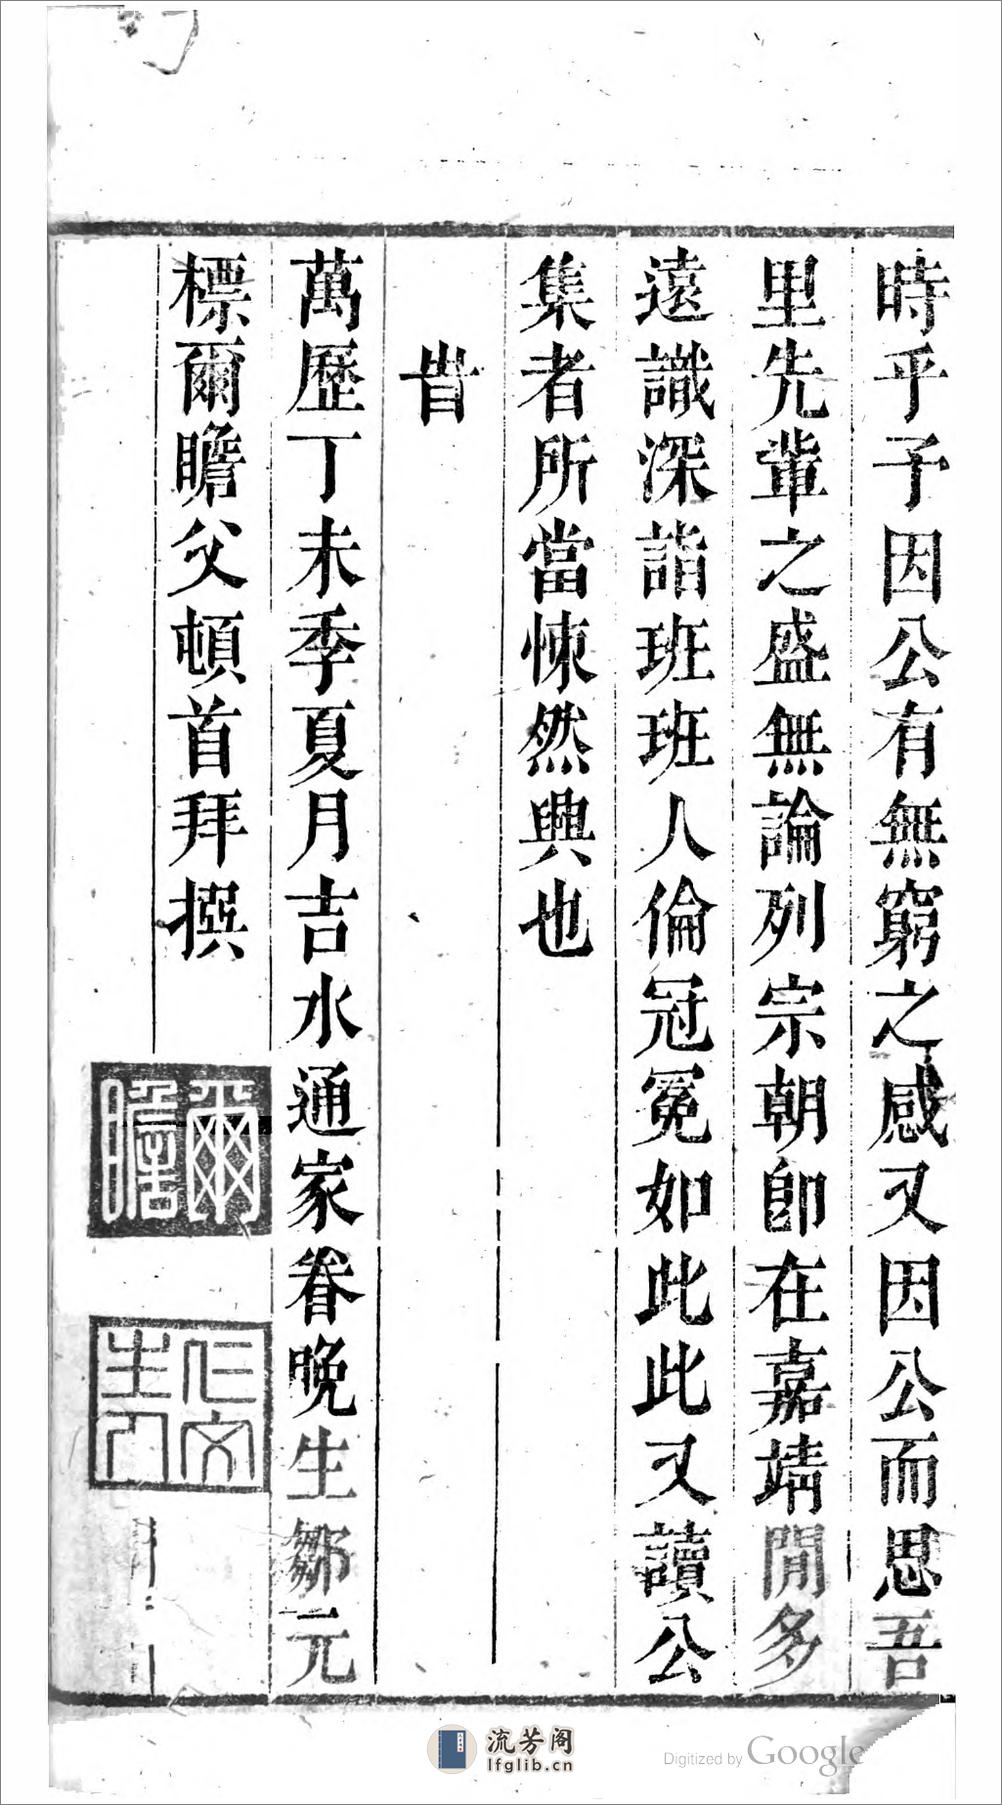 時乎予因公有無窮之感又因公而思吾
里先軰之盛無論列宗朝卽在嘉靖閒多
遠識深詣班班人倫冠冕如此此又讀公
集者所當悚然興也
旹
萬歷丁未季夏月吉水通家眷晚生鄒元
標爾瞻父頓首拜撰
爾瞻
流芳阁
lfglib.cn
Digitized by Google